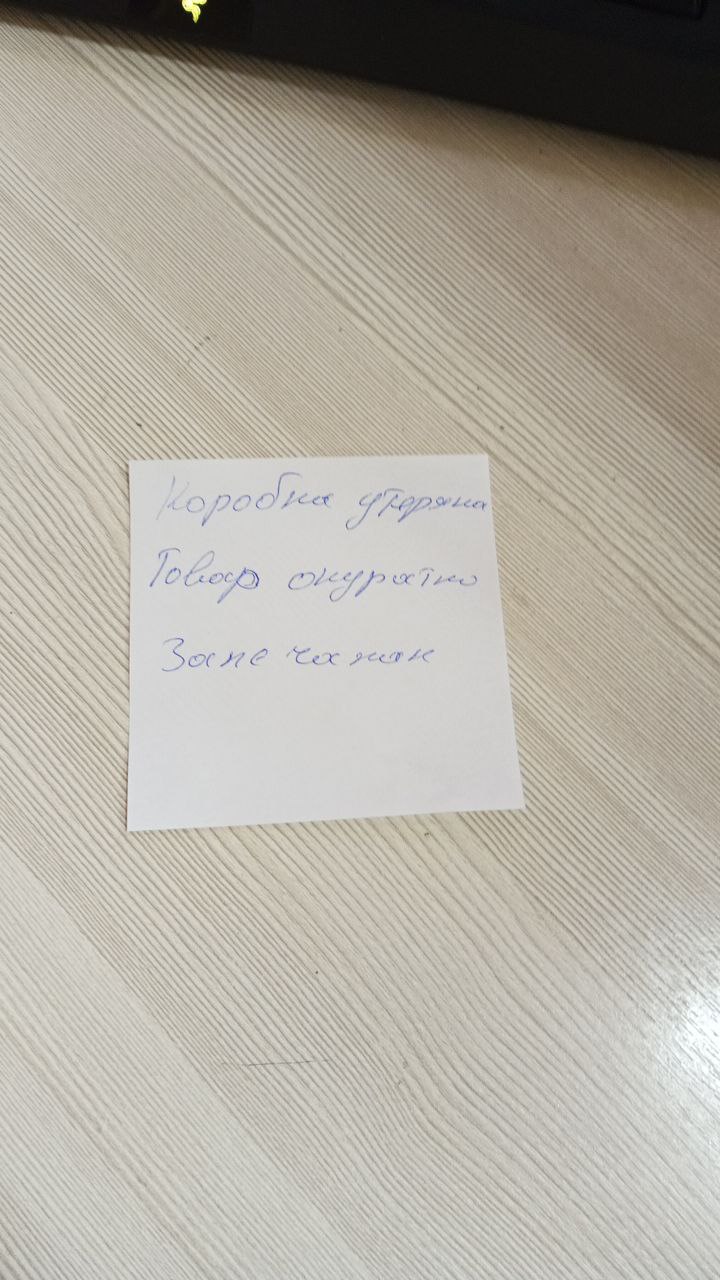 Коробка утеряна
Товар акуратно
Запечатан